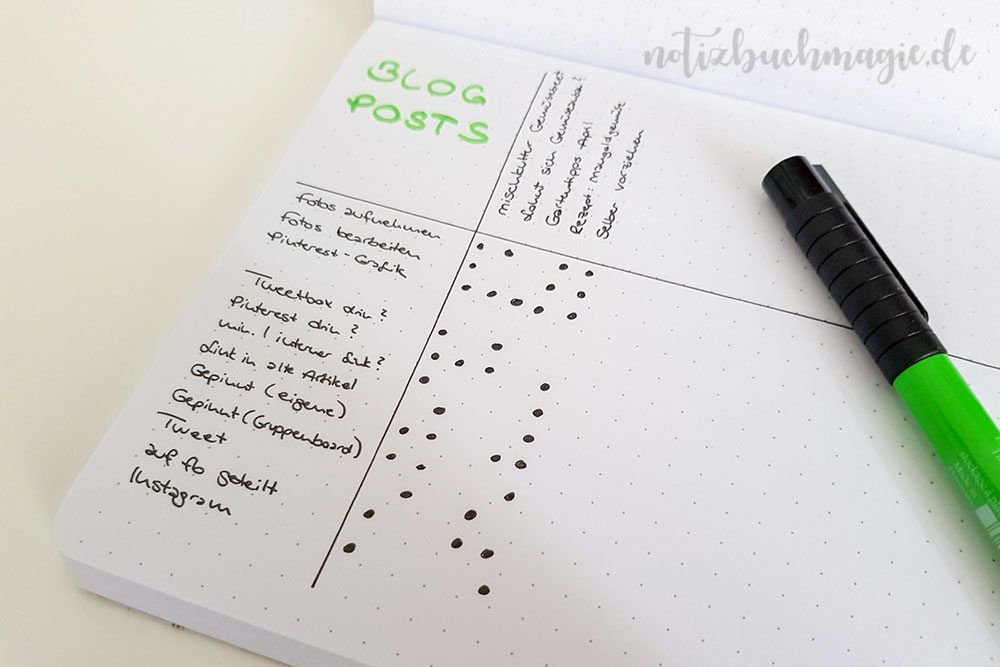 notizbuchmagie.de
BLOG
POSTS
Mischkultur Gemüsebeet
Lohnt sich Gemüseanbau?
Gartentipps April
Rezept: Mangoldgemüse
Selber vorziehen
Fotos aufnehmen
Fotos bearbeiten
Pinterest-Grafik
Tweetbox drin?
Pinterest drin?
min. 1 interner Link?
Link in alte Artikel
Gepinnt (eigene)
Gepinnt (Gruppenboard)
Tweet
auf fb geteilt
Instagram
Made in